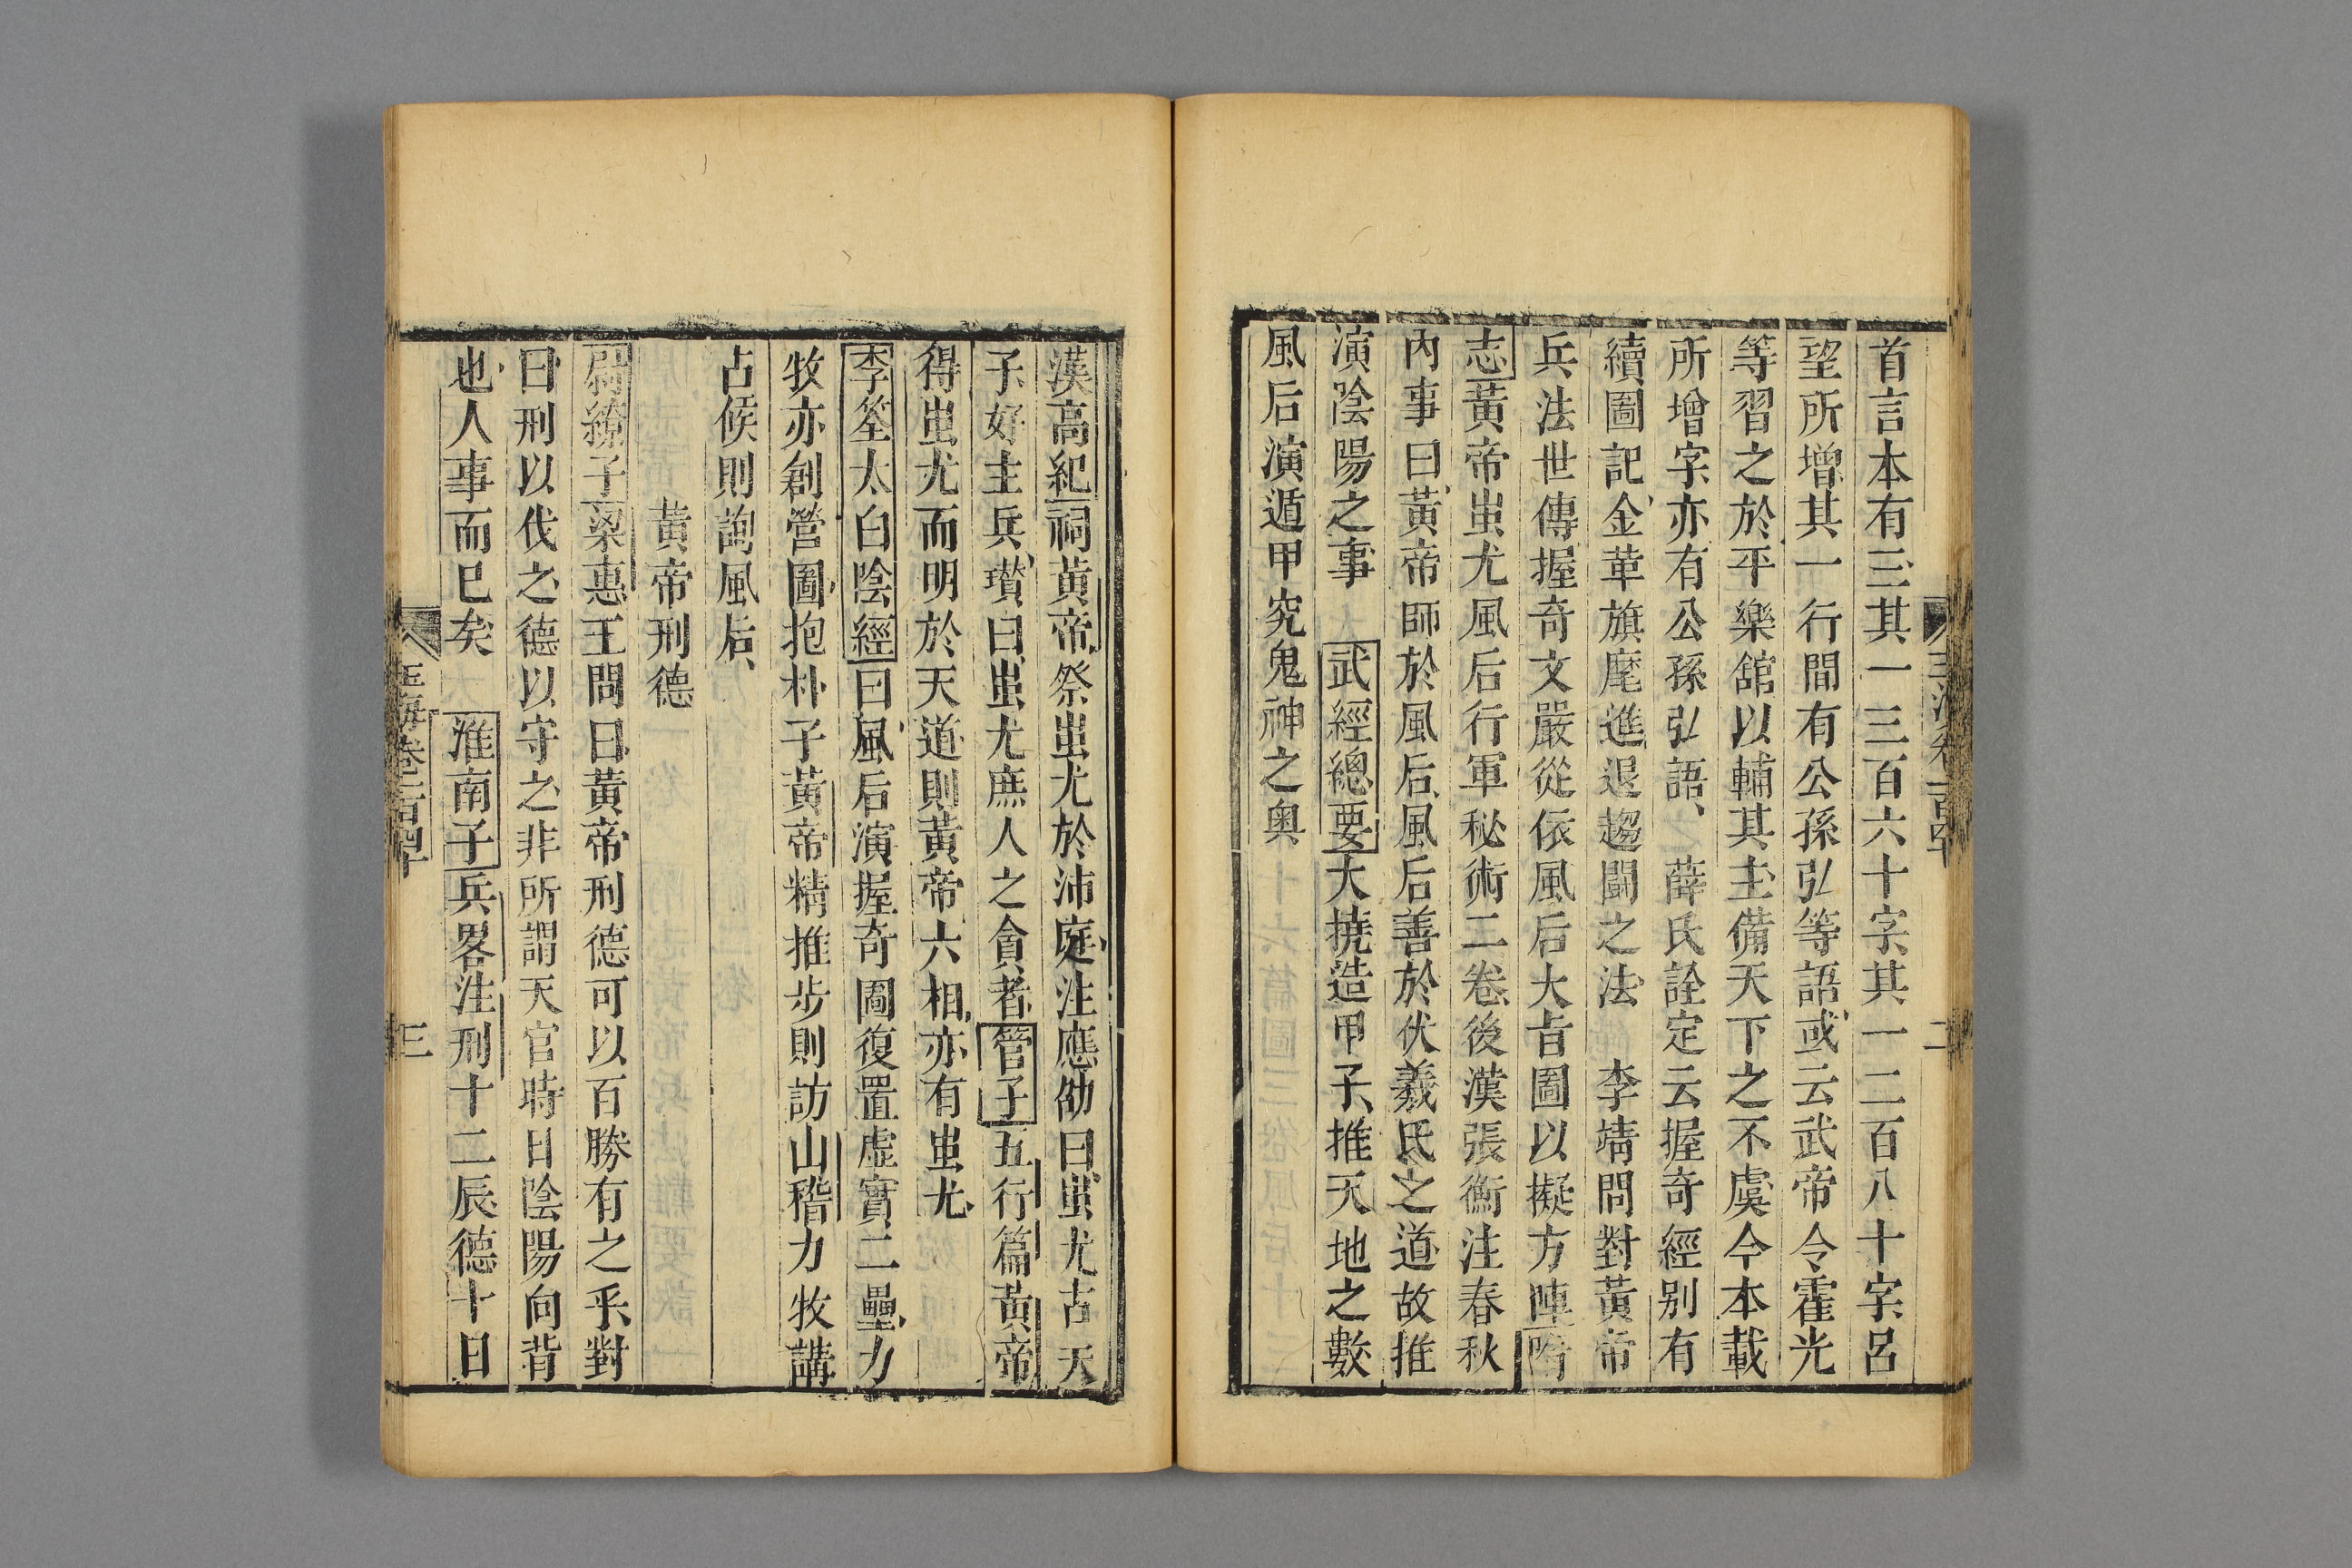 首言本有三其一三百六十字其一二百八十字呂
望所增其一行間有公孫弘等語或云武帝令霍光
等習之於平樂舘以輔其主備天下之不虞今本載
所增字亦有公孫弘語 薛氏詮定云握奇經别有
續圖記金革旗麾進退趨鬭之法 李靖問對黃帝
兵法世傳握奇文嚴從依風后大㫖圖以擬方陣隋
志黃帝蚩尤風后行軍秘術二卷後漢張衡注春秋
內事曰黃帝師於風后風后善於伏羲氏之道故推
演陰陽之事 武經總要大撓造甲子推天地之數
風后演遁甲究鬼神之奥
玉海卷一百四十
二
漢高紀祠黃帝祭蚩尤於沛庭注應劭曰蚩尤古天
子好主兵瓚曰蚩尤庶人之貪者管子五行篇黃帝
得蚩尤而明於天道則黃帝六相亦有蚩尤
李筌太白陰經曰風后演握奇圖復置虛實二壘力
牧亦創營圖抱朴子黃帝精推步則訪山稽力牧講
占候則詢風后
黃帝刑德
尉繚子梁惠王問曰黃帝刑德可以百勝有之乎對
曰刑以伐之德以守之非所謂天官時日陰陽向背
也人事而已矣 淮南子兵畧注刑十二辰德十日
玉海卷一百四十
三